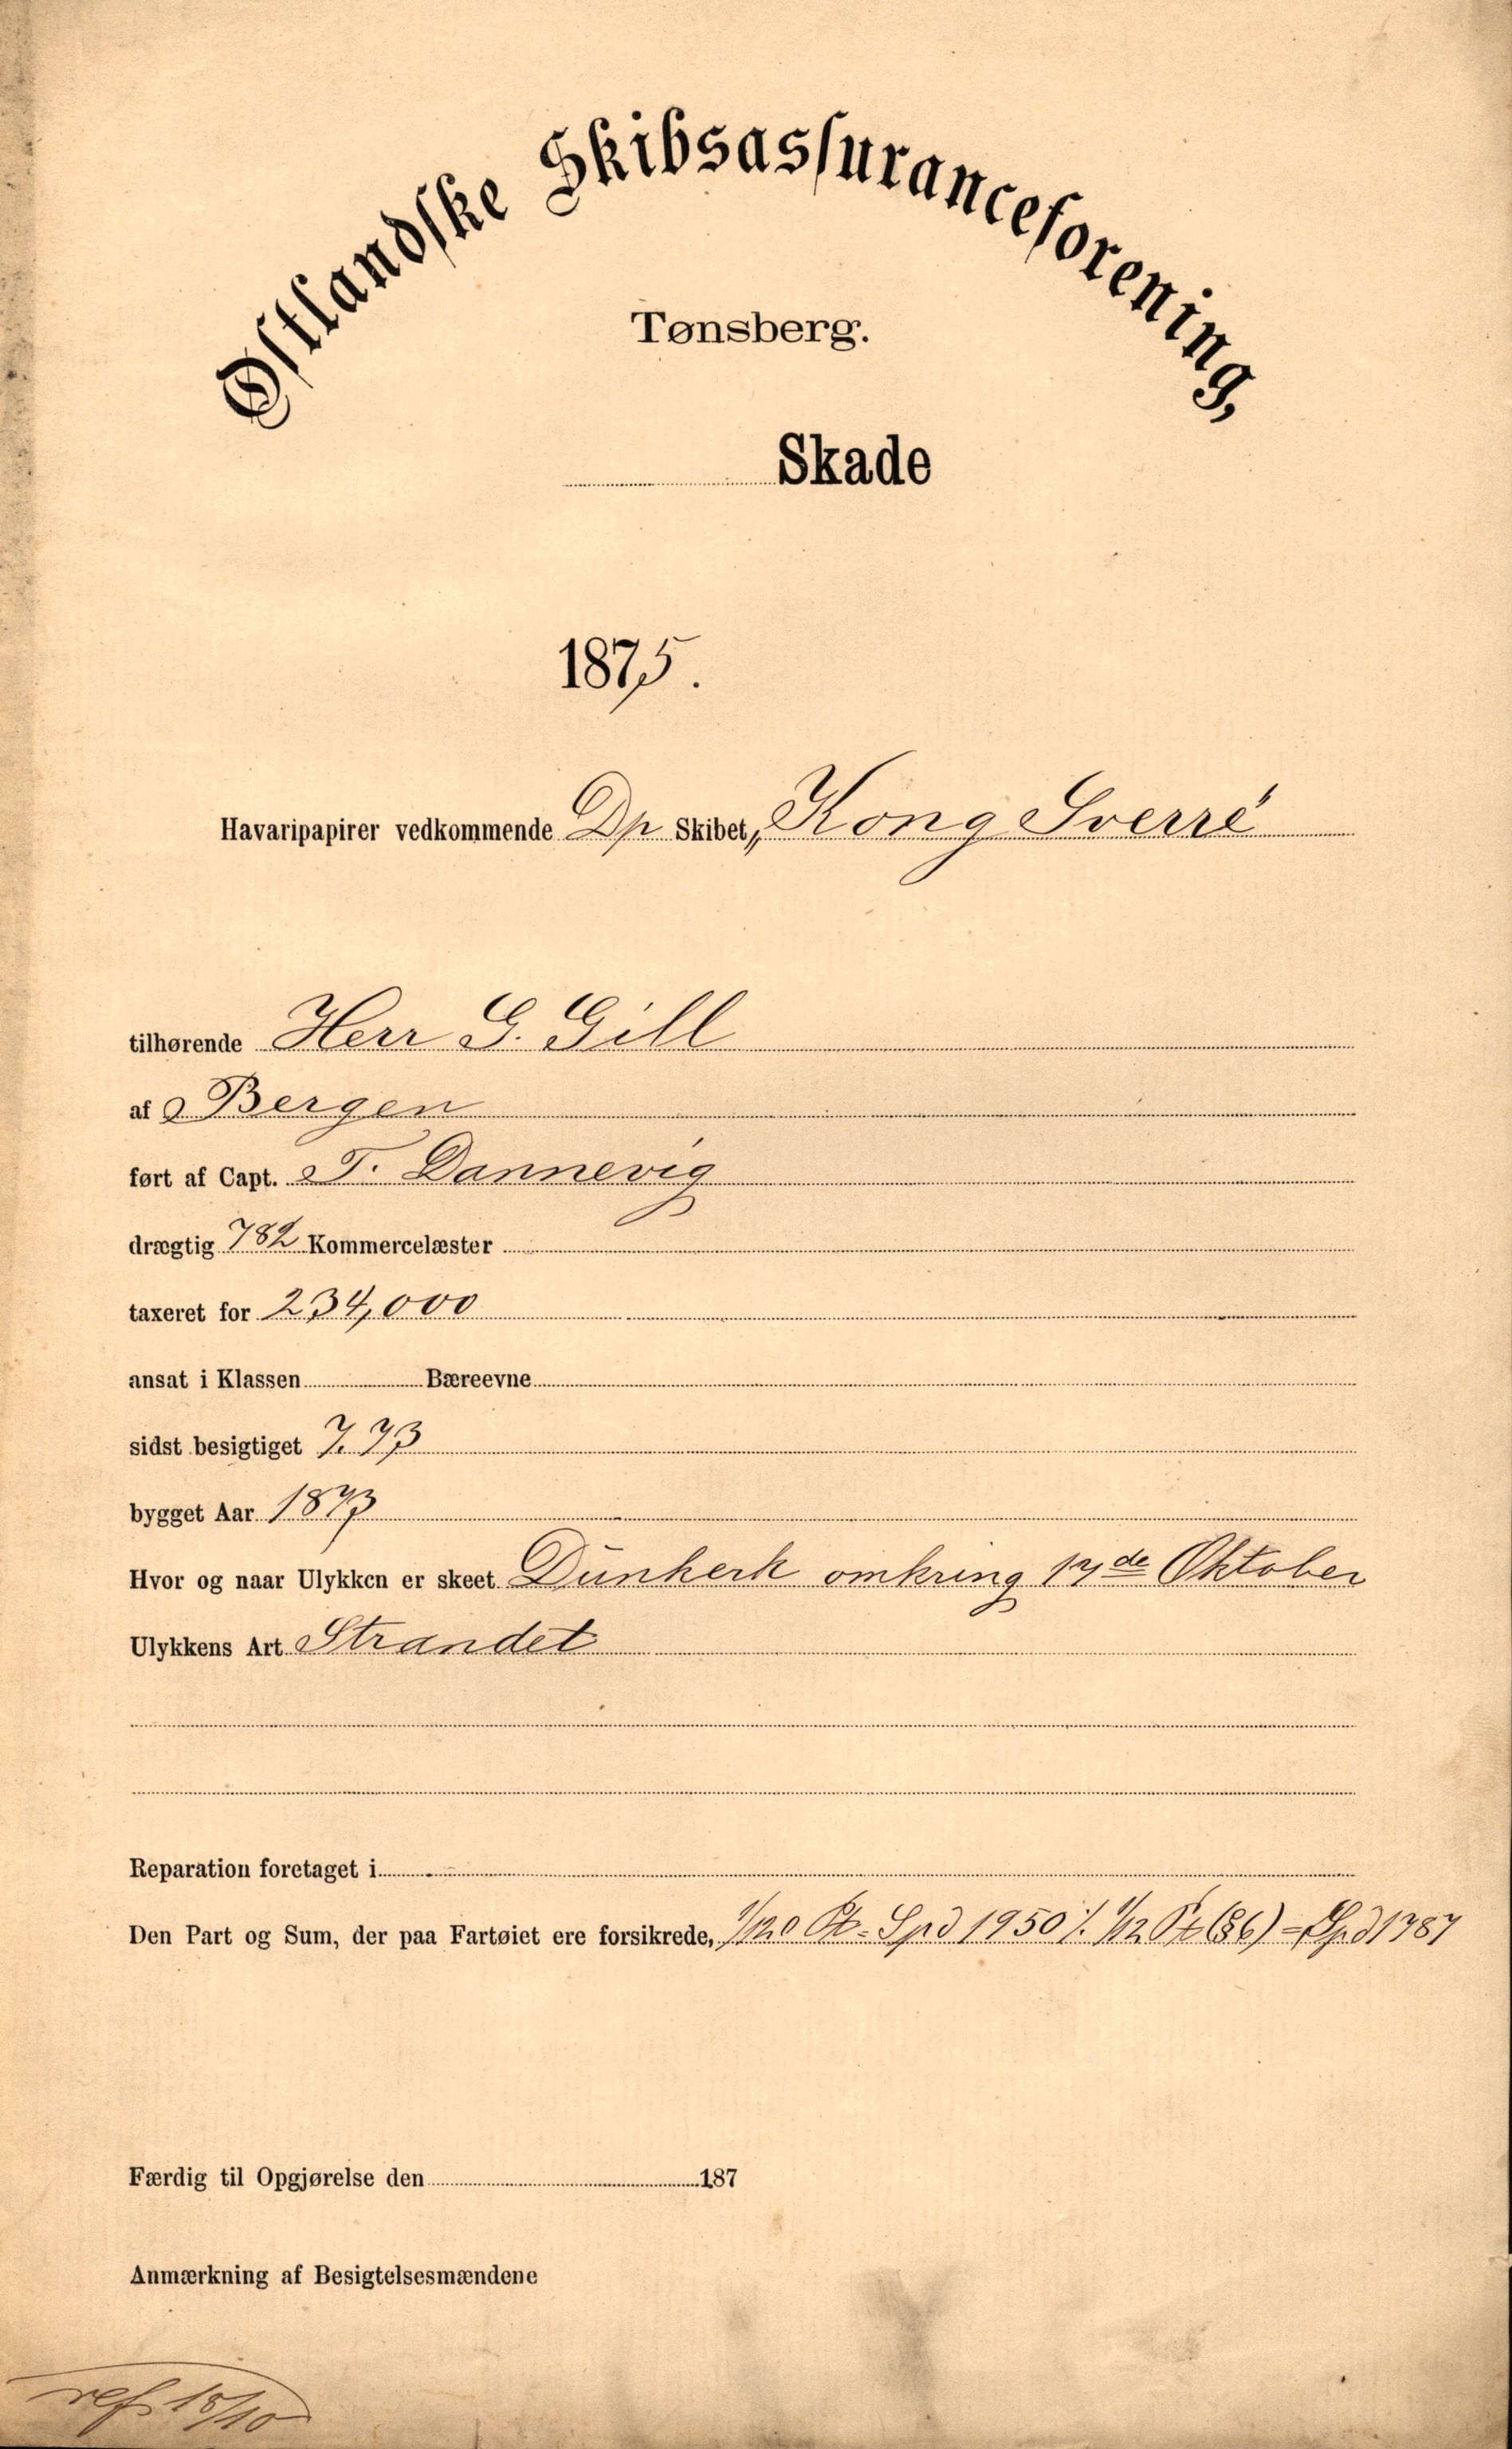 Østlandske Skibsassuranceforening,
Tønsberg.
Skade
1875.
Havaripapirer vedkommende Dp Skibet, „Kong Sverre"
tilhørende Herr G. Gill
af Bergen
ført af Capt. T. Dannevig
drægtig 782 Kommercelæster
taxeret for 234,000
ansat i Klassen Bæreevne
sidst besigtiget 7. 73
bygget Aar 1873
Hvor og naar Ulykken er skeet Dünkerk omkring de Oktober
Ulykkens Art Strandet
Reparation foretaget i
Den Part og Sum, der paa Fartøiet ere forsikrede, 1/120 Pt = Spd 1950 ٪ 1/12 Pt (86) = Spd 1787
Færdig til Opgjørelse den 187
Anmærkning af Besigtelsesmændene
ref. 18/10